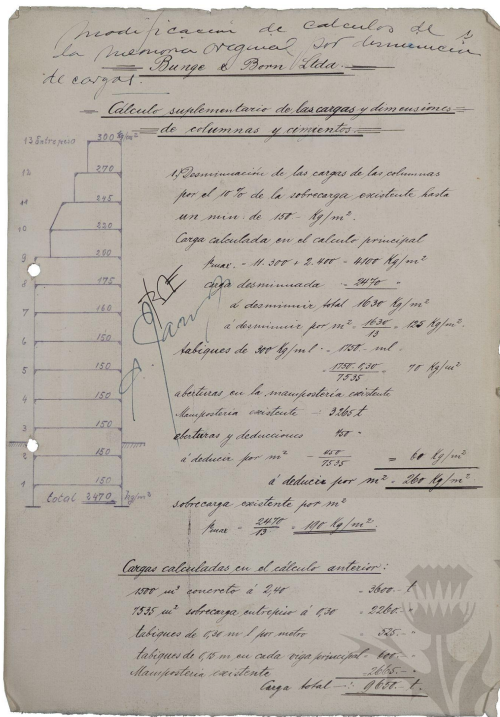 modificación de calculos de
la memoria original por disminución
de cargas.
Bunge & Born Ltda.
Cálculo suplementario de las cargas y dimensiones
de columnas y cimientos.
13 Entrepiso 300 Kg/m²
12 270
11 245
10 220
9 200
8 175
7 160
6 150
5 150
4 150
3 150
2 150
1 150
total 2470 kg/m²
1) Desminuación de las cargas de las columnas
por el 10% de la sobrecarga existente hasta
un min. de 150 - Kg/m².
Carga calculada en el calculo principal
pmax. = 11.300 + 2.400 = 4100 Kg/m²
carga desminuada = 2470 "
á desminuir total 1630 Kg/m²
á desminuir por m² = 1630/13 = 125 Kg/m².
tabiques de 300 Kg/ml = 1750 - ml -
1750.0,30/7535 = 70 Kg/m²
aberturas en la mamposteria existente
Mamposteria existente = 3265 t
aberturas y deducciones 450 "
á deducir por m² = 450/7535 = 60 Kg/m²
á deducir por m² = 260 Kg/m².
sobrecarga existente por m²
pmax = 2470/13 = 190 Kg/m².
Cargas calculadas en el cálculo anterior:
1500 m³ concreto á 2,40 = 3600.- t
7535 m² sobrecarga entrepiso á 0,30 = 2260.- "
tabiques de 0,30 m l por metro = 525.- "
tabiques de 0,15 m en cada viga principal = 600.- "
Mamposteria existente 2665.- "
Carga total = 9650.- t.